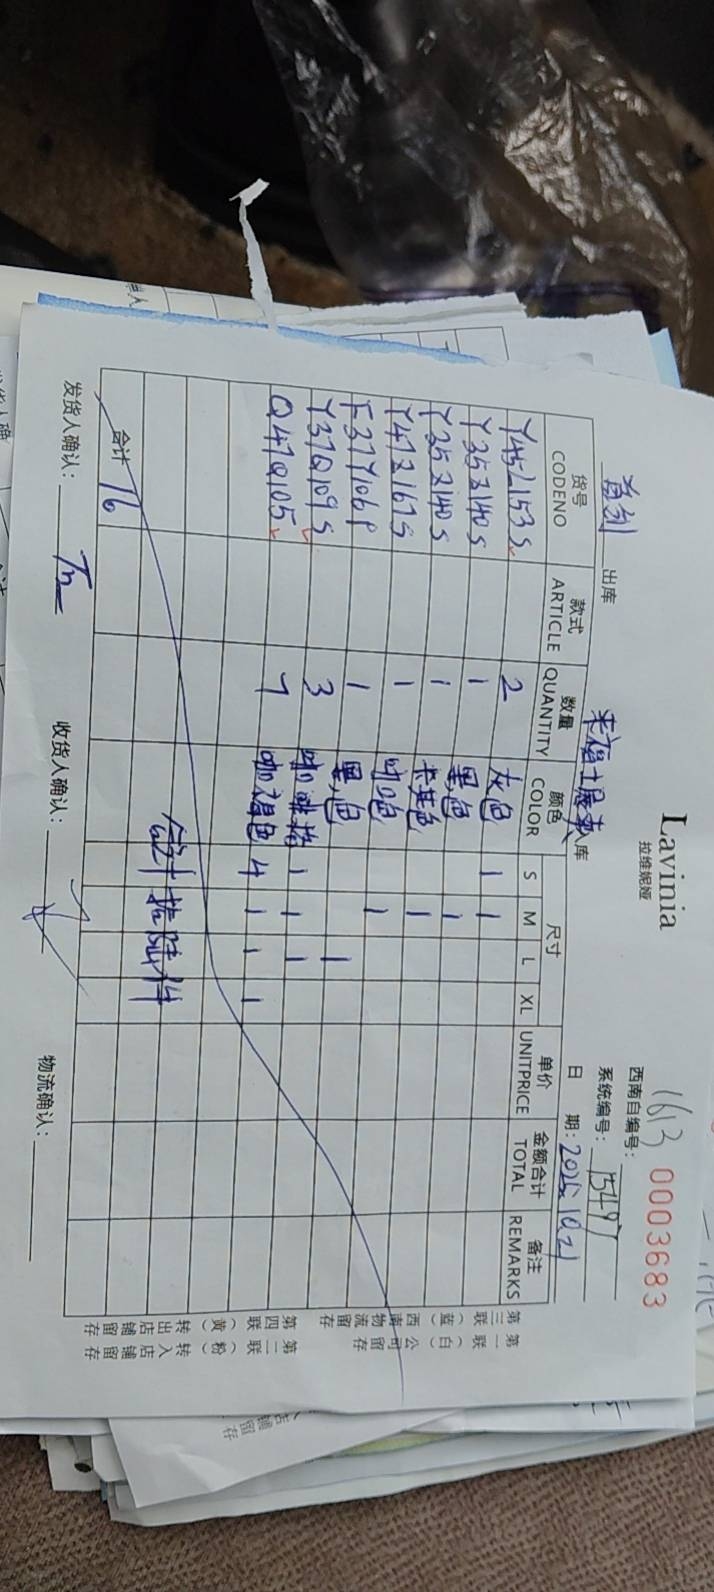 Lavinia
拉维妮娅
1613 0003683
西南自编号:
系统编号: 15497
出库 来福士晨曦库 日期:
货号 CODENO 款式 ARTICLE 数量 QUANTITY 颜色 COLOR 尺寸 S M L XL 单价 UNITPRICE 金额合计 TOTAL 备注 REMARKS
Y45L153S 2 灰色 1 1
Y35Z140S 1 黑色 1
Y35Z140S 1 卡其色 1
Y47Z167S 1 1
F37Y106P 1 黑色 1
Y37Q109S 3 咖啡格 1 1 1
Q47Q105 7 咖褐色 4 1 1 1
合计壹拾陆件
合计 16
发货人确认: 收货人确认: 物流确认:
第一联(白)公司留存
第二联(粉)转入店铺留存
第三联(蓝)西南物流留存
第四联(黄)转出店铺留存